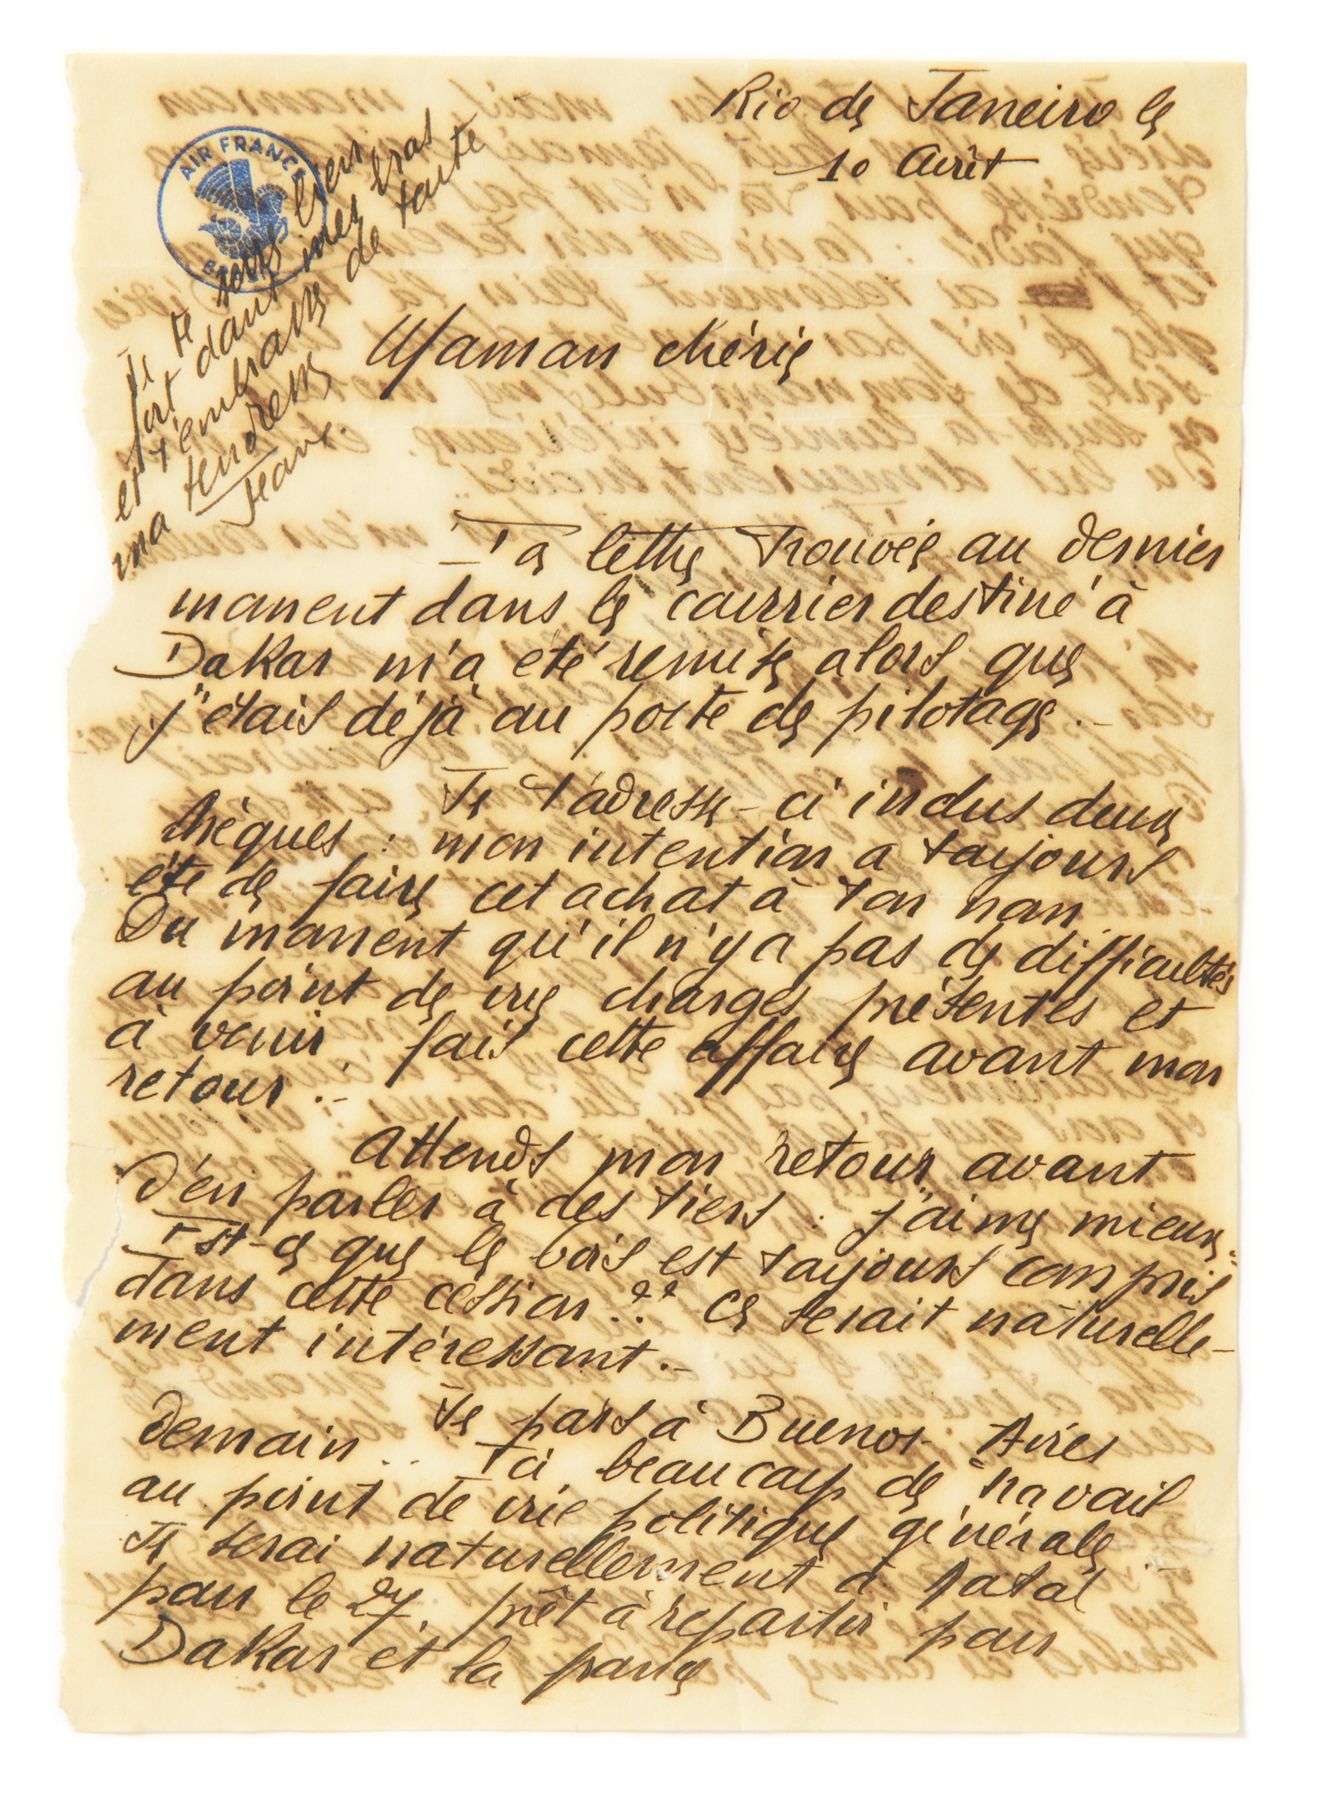 Rio de Janeiro le
10 Août
AIR FRANCE
Je te serre bien
fort dans mes bras
et t'embrasse de toute
ma tendresse
Jean.
Maman chérie
Ta lettre trouvée au dernier
moment dans le courrier destiné à
Dakar m'a été remise alors que
j'étais déjà au poste de pilotage.-
Je t'adresse - ci inclus deux
chèques : mon intention a toujours
été de faire cet achat à ton nom
Du moment qu'il n'y a pas de difficultés
au point de vue charges présentes et
à venir fais cette affaire avant mon
retour.-
Attends mon retour avant
d'en parler à des tiers : j'aime mieux.
Est-ce que le bois est toujours compris
dans cette cession..?? Ce serait naturelle-
ment intéressant.-
Je pars à Buenos-Aires
demain.. Ici beaucoup de travail
au point de vue politique générale
Je serai naturellement à Natal
pour le 27, prêt à repartir pour
Dakar et la